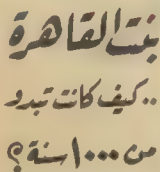 بنت القاهرة
..كيف كانت تبدو
من ١٠٠٠ سنة؟